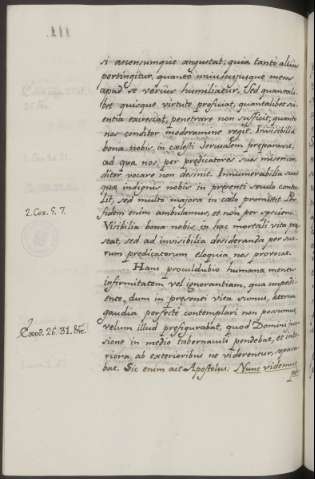 111.
si accensumque angustat, quia tanto alius
pertingitur, quanto uniuscujusque mens
apud se verius humiliatur. Sed quantali-
bet quisque virtute proficiat, quantalibet sci-
entia excrescat, penetrare non sufficit, quanto
nos conditor moderamine regit. Invisibilia
bona nobis, in cælesti Jerusalem præparavit,
ad qua nos per prædicatores suos misericor
diter vocare non desinit. Innumerabilia sua
qua indignis nobis in præsenti sæculo contu-
lit, sed multa majora in cælo promittit. Per
2. Cor. 5. 7.
fidem enim ambulamus, et non per speciem.
Visibilia bona nobis, in hac mortali vita præ
stat, sed ad invisibilia desideranda per suo-
rum prædicatorum eloquia nos provocat.
Hanc procul dubio humana mentis
infirmitatem vel ignorantiam, qua impedi-
ente, dum in præsenti vita sumus, æterna
gaudia perfecte contemplari non possumus,
Exod. 26. 31. &c.
velum illud præfigurabat, quod Domini jus-
sione in medio tabernaculi pendebat, et inte
riora ab exterioribus ne viderentur, separa-
bat. Sic enim ait Apostolus. Nunc videmus